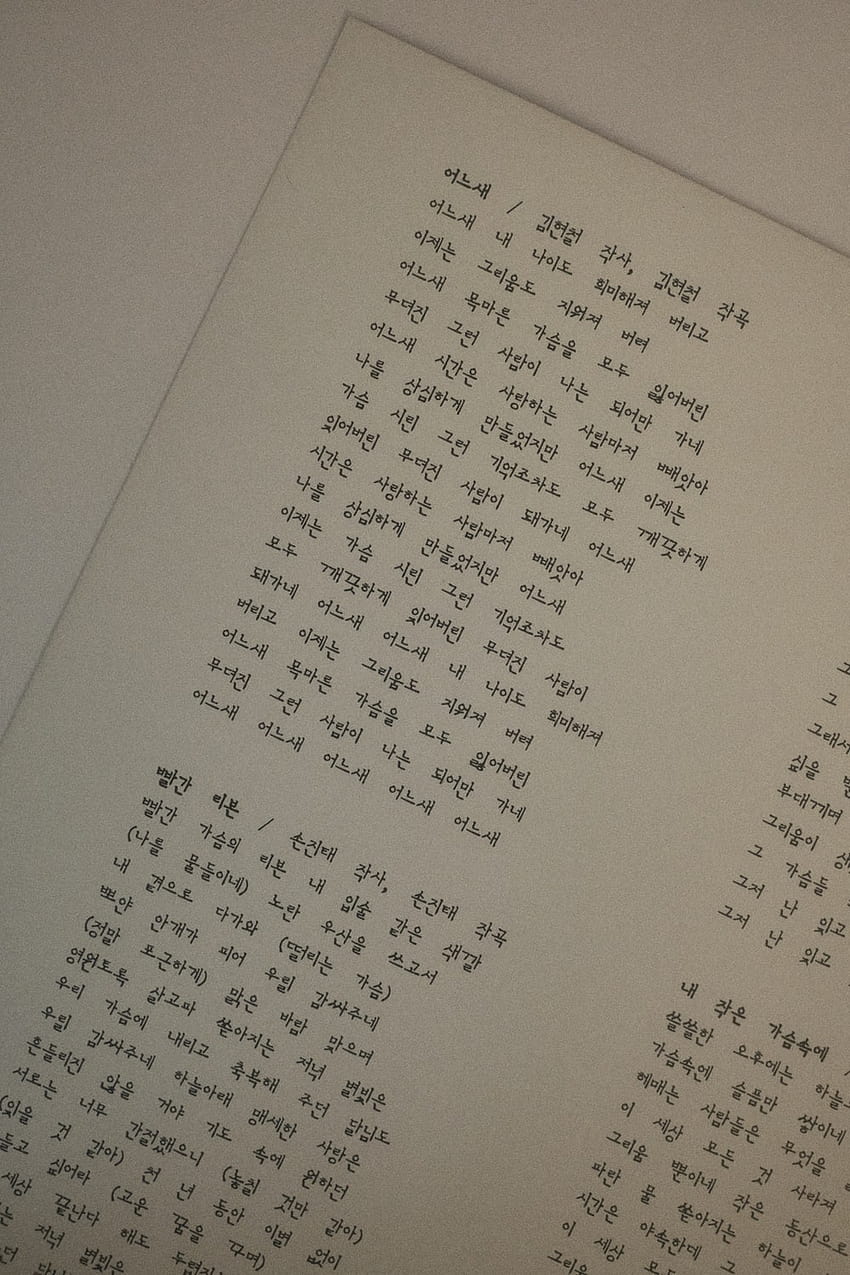 어느새 / 김현철 작사, 김현철 작곡
어느새 내 나이도 희미해져 버리고
이제는 그리움도 지워져 버려
어느새 목마른 가슴을 모두 잃어버린
무뎌진 그런 사람이 나는 되어만 가네
어느새 시간은 사랑하는 사람마저 빼앗아
나를 상심하게 만들었지만 어느새 이제는
가슴 시린 그런 기억조차도 모두 깨끗하게
잊어버린 무뎌진 사람이 돼가네 어느새
시간은 사랑하는 사람마저 빼앗아
나를 상심하게 만들었지만 어느새
이제는 가슴 시린 그런 기억조차도
모두 깨끗하게 잊어버린 무뎌진 사람이
돼가네 어느새 어느새 내 나이도 희미해져
버리고 이제는 그리움도 지워져 버려
어느새 목마른 가슴을 모두 잃어버린
무뎌진 그런 사람이 나는 되어만 가네
어느새 어느새 어느새 어느새 어느새
빨간 리본 / 손진태 작사, 손진태 작곡
빨간 가슴의 리본 내 입술 같은 색깔
(나를 물들이네) 노란 우산을 쓰고서
내 곁으로 다가와 (떨리는 가슴)
뽀얀 안개가 피어 우릴 감싸주네
(정말 포근하게) 맑은 바람 맞으며
영원토록 살고파 쏟아지는 저녁 별빛은
우리 가슴에 내리고 축복해 주던 달님도
우릴 감싸주네 하늘아래 맹세한 사랑은
흔들리진 않을 거야 기도 속에 원하던
서로는 너무 간절했으니 (놓칠 것만 같아)
(잊을 것 같아) 천 년 동안 이별 없이
싶어라 (고운 꿈을 꾸며)
세상 끝난다 해도
저녁 별빛은
그
그래서
싶을
부대끼며
그리움이
그 가슴들
그저 난 잊고
그저 난 잊고
내 작은 가슴속에 /
쓸쓸한 오후에는
가슴속엔 슬픔만 쌓이네
헤매는 사람들은 무엇을
이 세상 모든 것 사라져
그리움 뿐이네 작은 동산으로
파란 물 쏟아지는 하늘이
시간은 야속한데 그
이 세상